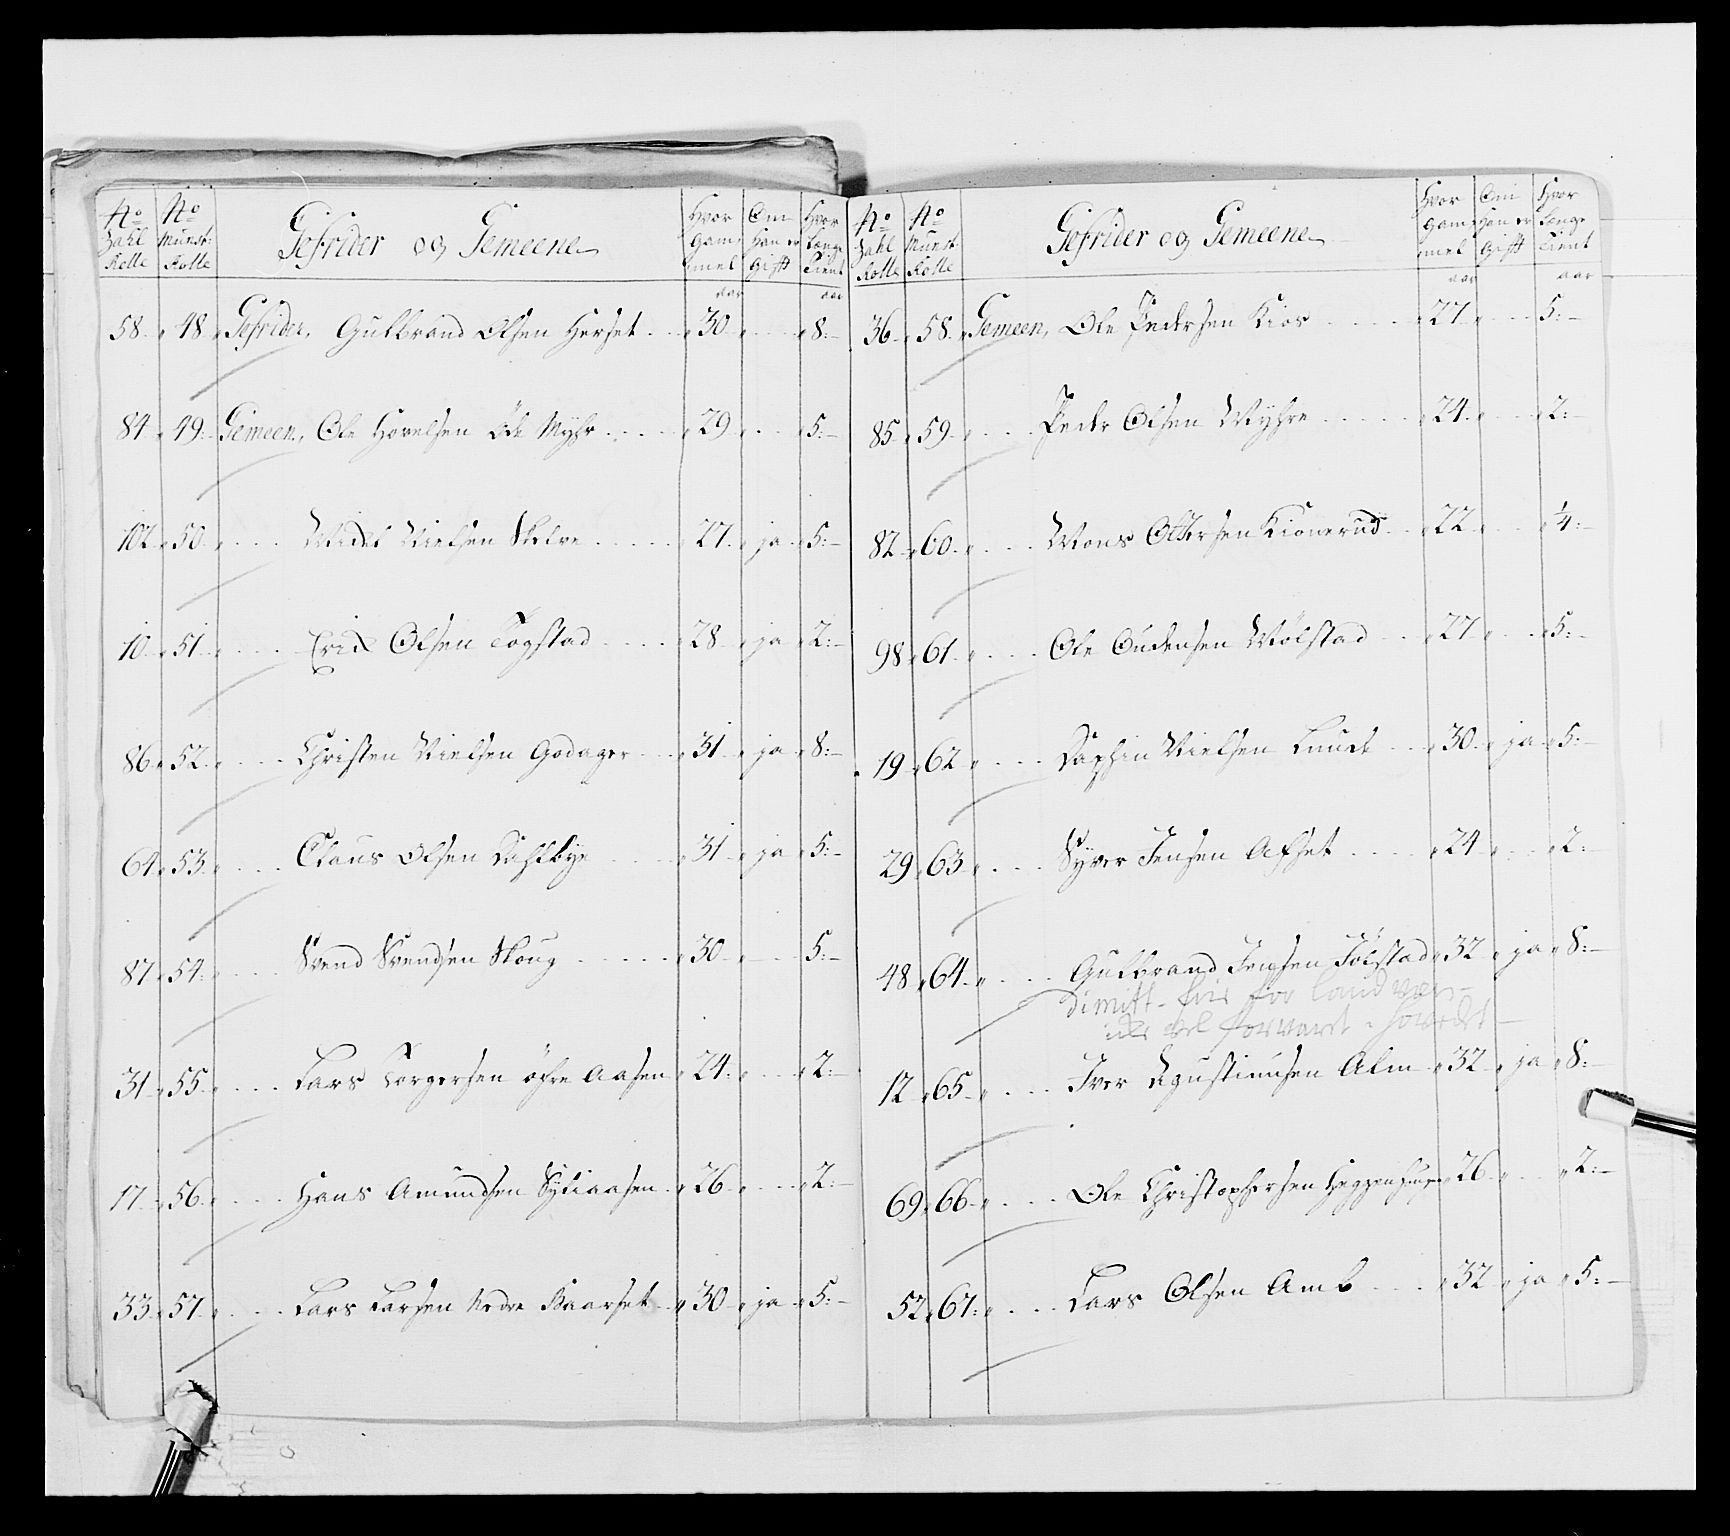 No Zahl Rolle | No Munst: Rolle | Gefrider og Gemeene | Hvor Gammel | Om Han er Gift | Hvor Længe Tient
aar | aar
58 | 48 | Gefrider, Gulbrand Olsen Herset | 30 | | 8:
84 | 49 | Gemeen, Ole Hovelsen Öde Myhr | 29 | | 5:
102 | 50 | Nielsen | 27 | ja | 5:
10 | 51 | Erick Olsen Togstad | 28 | ja | 2:
86 | 52 | Christen Nielsen Godager | 31 | ja | 8:
64 | 53 | Claus Olsen Dahlbye | 31 | ja | 5:
87 | 54 | Svend Svendsen Houg | 30 | | 5:
31 | 55 | Lars Torgersen öfre Aasen | 24 | | 2:
17 | 56 | Hans Amundsen | 26 | | 2:
33 | 57 | Lars Larsen Nedre Kaarset | 30 | ja | 5:
No Zahl Rolle | No Munst: Rolle | Gefrider og Gemeene | Hvor Gammel | Om Han er Gift | Hvor Længe Tient
aar | aar
36 | 58 | Gemeen, Ole Pedersen Kios | 27 | | 5:
85 | 59 | Peder Olsen Myhre | 24 | | 2:
82 | 60 | Mons Ottersen Kionerud | 22 | | 1/4:
98 | 61 | Ole Gudensen Mölstad | 27 | | 5:
19 | 62 | Nielsen Lunde | 30 | ja | 5:
29 | 63 | Syver Jensen Afset | 24 | | 2:
48 | 64 | Gulbrand Jensen Jölstad | 32 | ja | 8:
dimitt. for landvær
12 | 65 | Iver Agustinusen Alm | 32 | ja | 8:
69 | 66 | Ole Christophersen | 26 | | 2:
52 | 67 | Lars Olsen Amb | 32 | ja | 5: